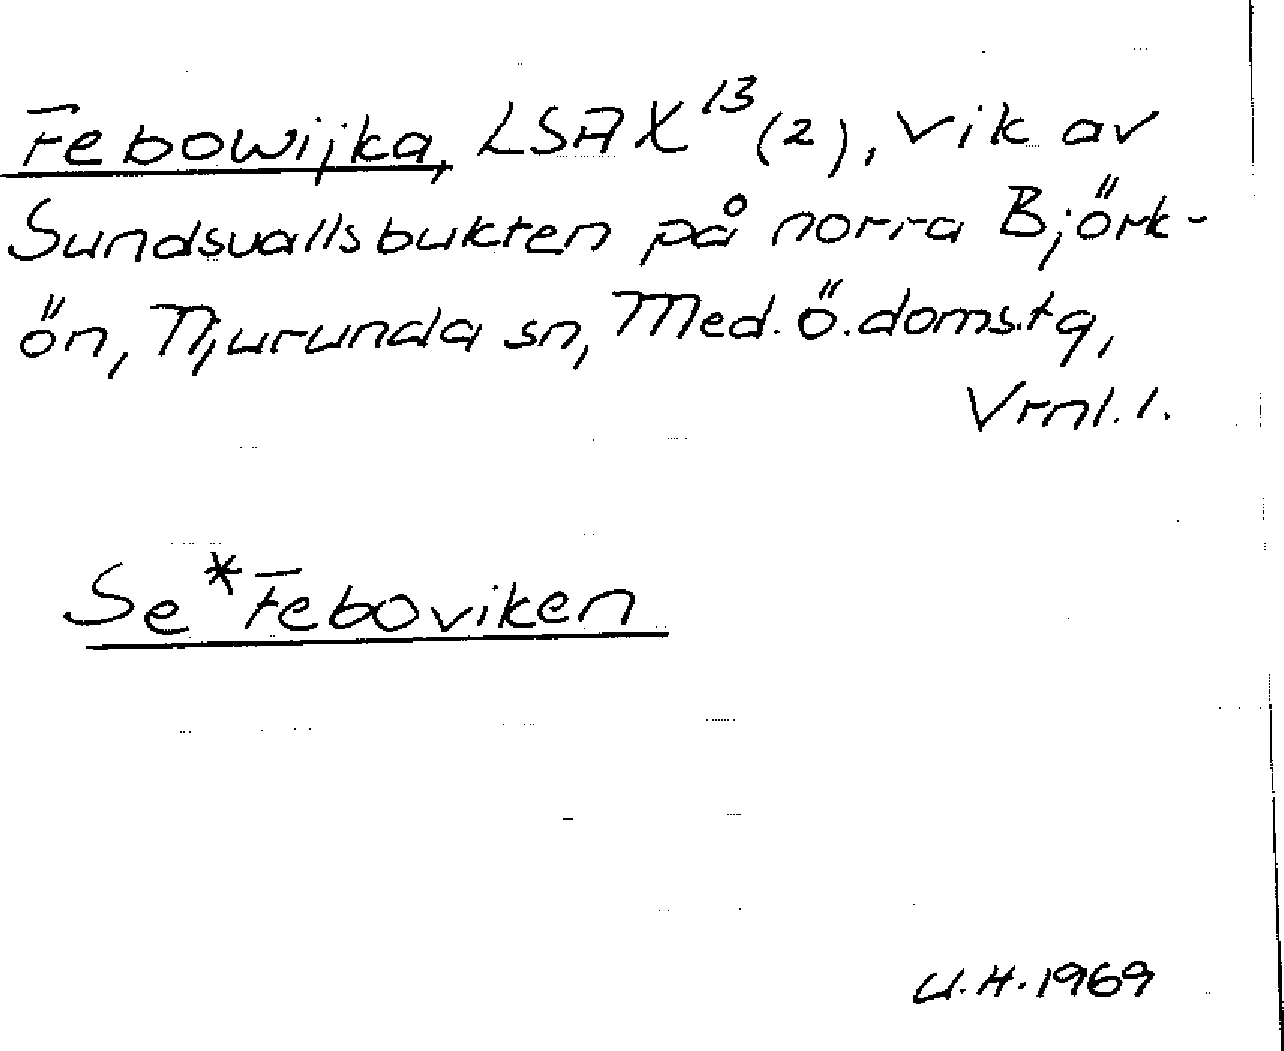 Febowijka, LSA X¹³ (2), vik av
Sundsvallsbukten på norra Björk-
ön, Njurunda sn, Med. ö. domst.g,
Vrnl. l.
Se *Feboviken
U.H. 1969